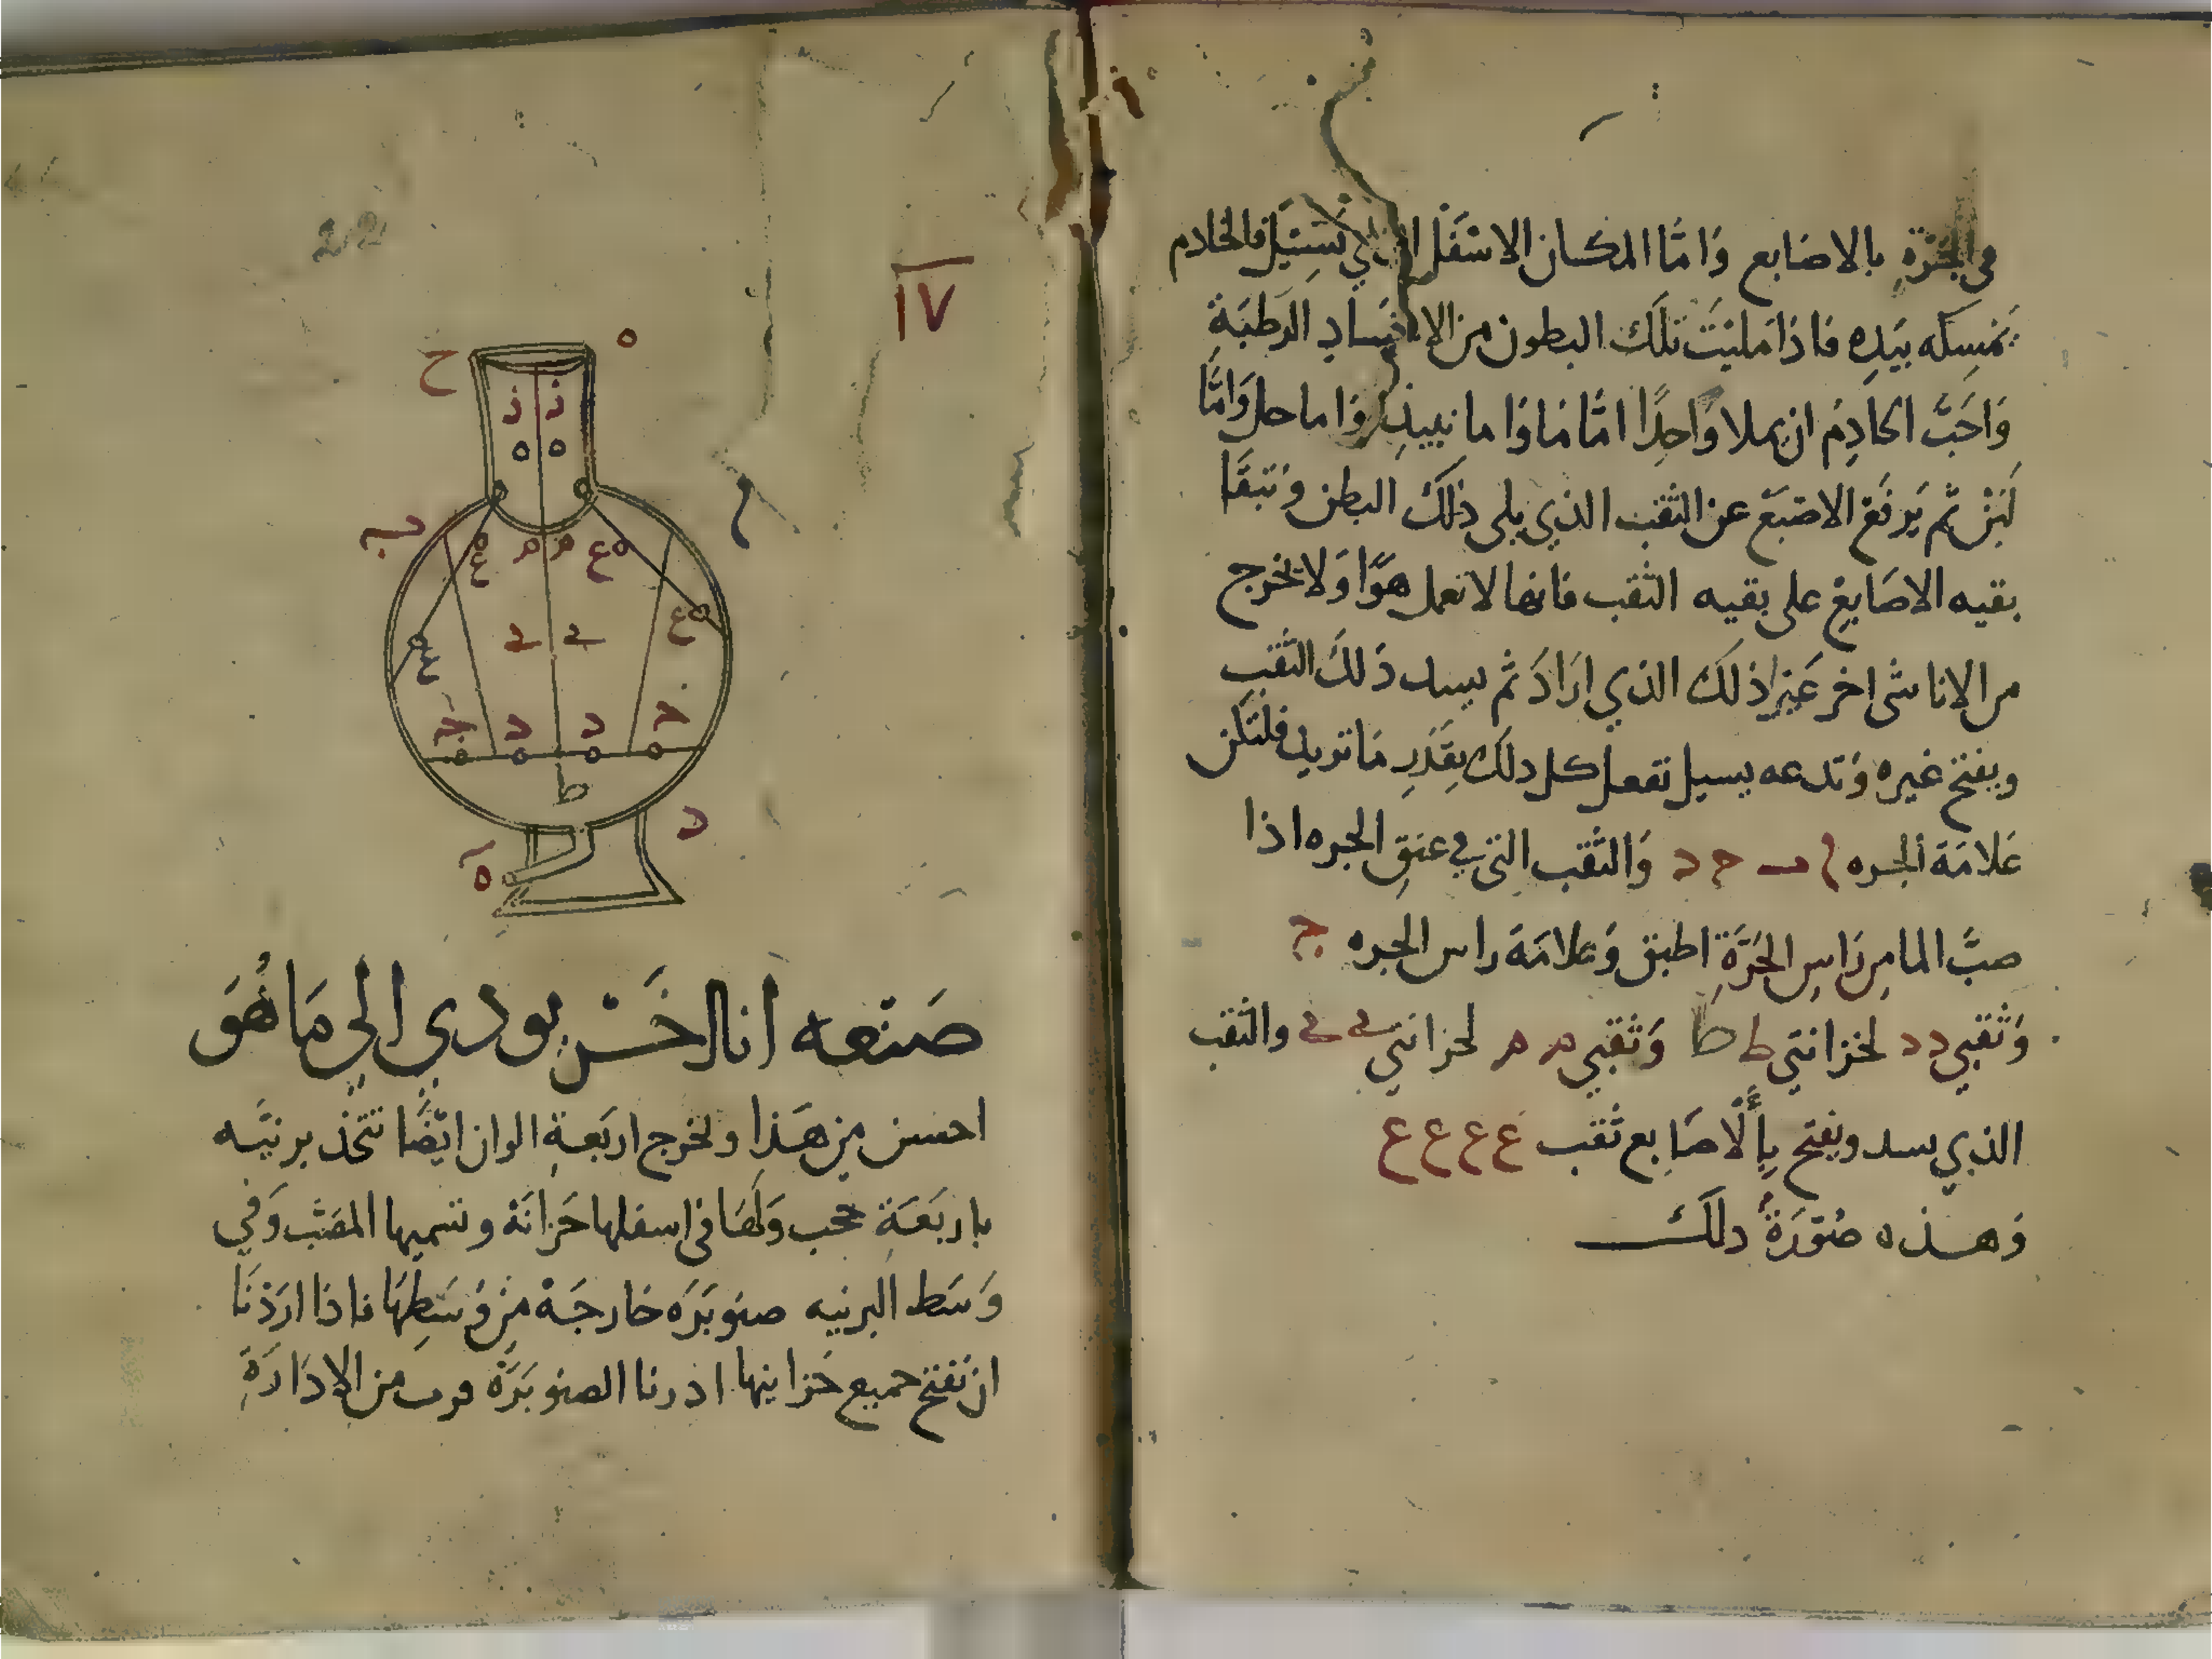 في الجرة بالاصابع وَامّا المكان الاسفل الذي يسيل فالخادم
يمسكه بيَدِه فاذا مليَت تلك البطون من الاجساد الرطبَة
وَاحَبّ الخادِم ان يملا وَاحِدًا امّا مَا وَاما نبيذ وَاما خل وَامّا
لَبَن ثم يَرفَع الاصبَع عن الثقب الذي يلي ذلك البطن وَتبقَا
بقيه الاصَابِع على بقيه الثقب فانها لا تعمل هوًا وَلا يخرج
من الانا شى اخر غَير ذلك الذي ارَادَ ثم يسد ذَلكَ الثقب
ويفتح غيره وَتدعه يسيل تفعل كل دلك بِقَدرِ مَا تريد فلتكن
عَلامَة الجره ا ب ح د وَالثقب التي في عنقِ الجره اذا
صبّ الما من رَاسِ الجَرَّة اطبق وَعلامَة راس الجره ج
وَثقبي د د لخزانتي ط ط وَثقبي م م لخزانتي ي ي والثقب
الذي يسد ويفتح بِالاصَابع ثقب ع ع ع ع
وَهذه صُوَرَةُ دلك
١٧
ح ه
ز ز
ب ا
ع م م ع
ع ي ي ع
د د د د
ط
د
ه
صَنعه انا اخَر يودي الي مَا هُوَ
احسن مِن هَذا ويخرج اربَعة الوان ايضًا تتخذ برنيَّه
باربَعَةِ حجب وَلهَا في اسفلها خَزانَة وتسميها المصَب وَفي
وَسَط البرنيه صنوبَرَه خارجَة مِن وَسَطِهَا فاذا ارَدنَا
ان نَفتح جميع خَزاينها ادرنا الصنوبَرَة من الادَارَة